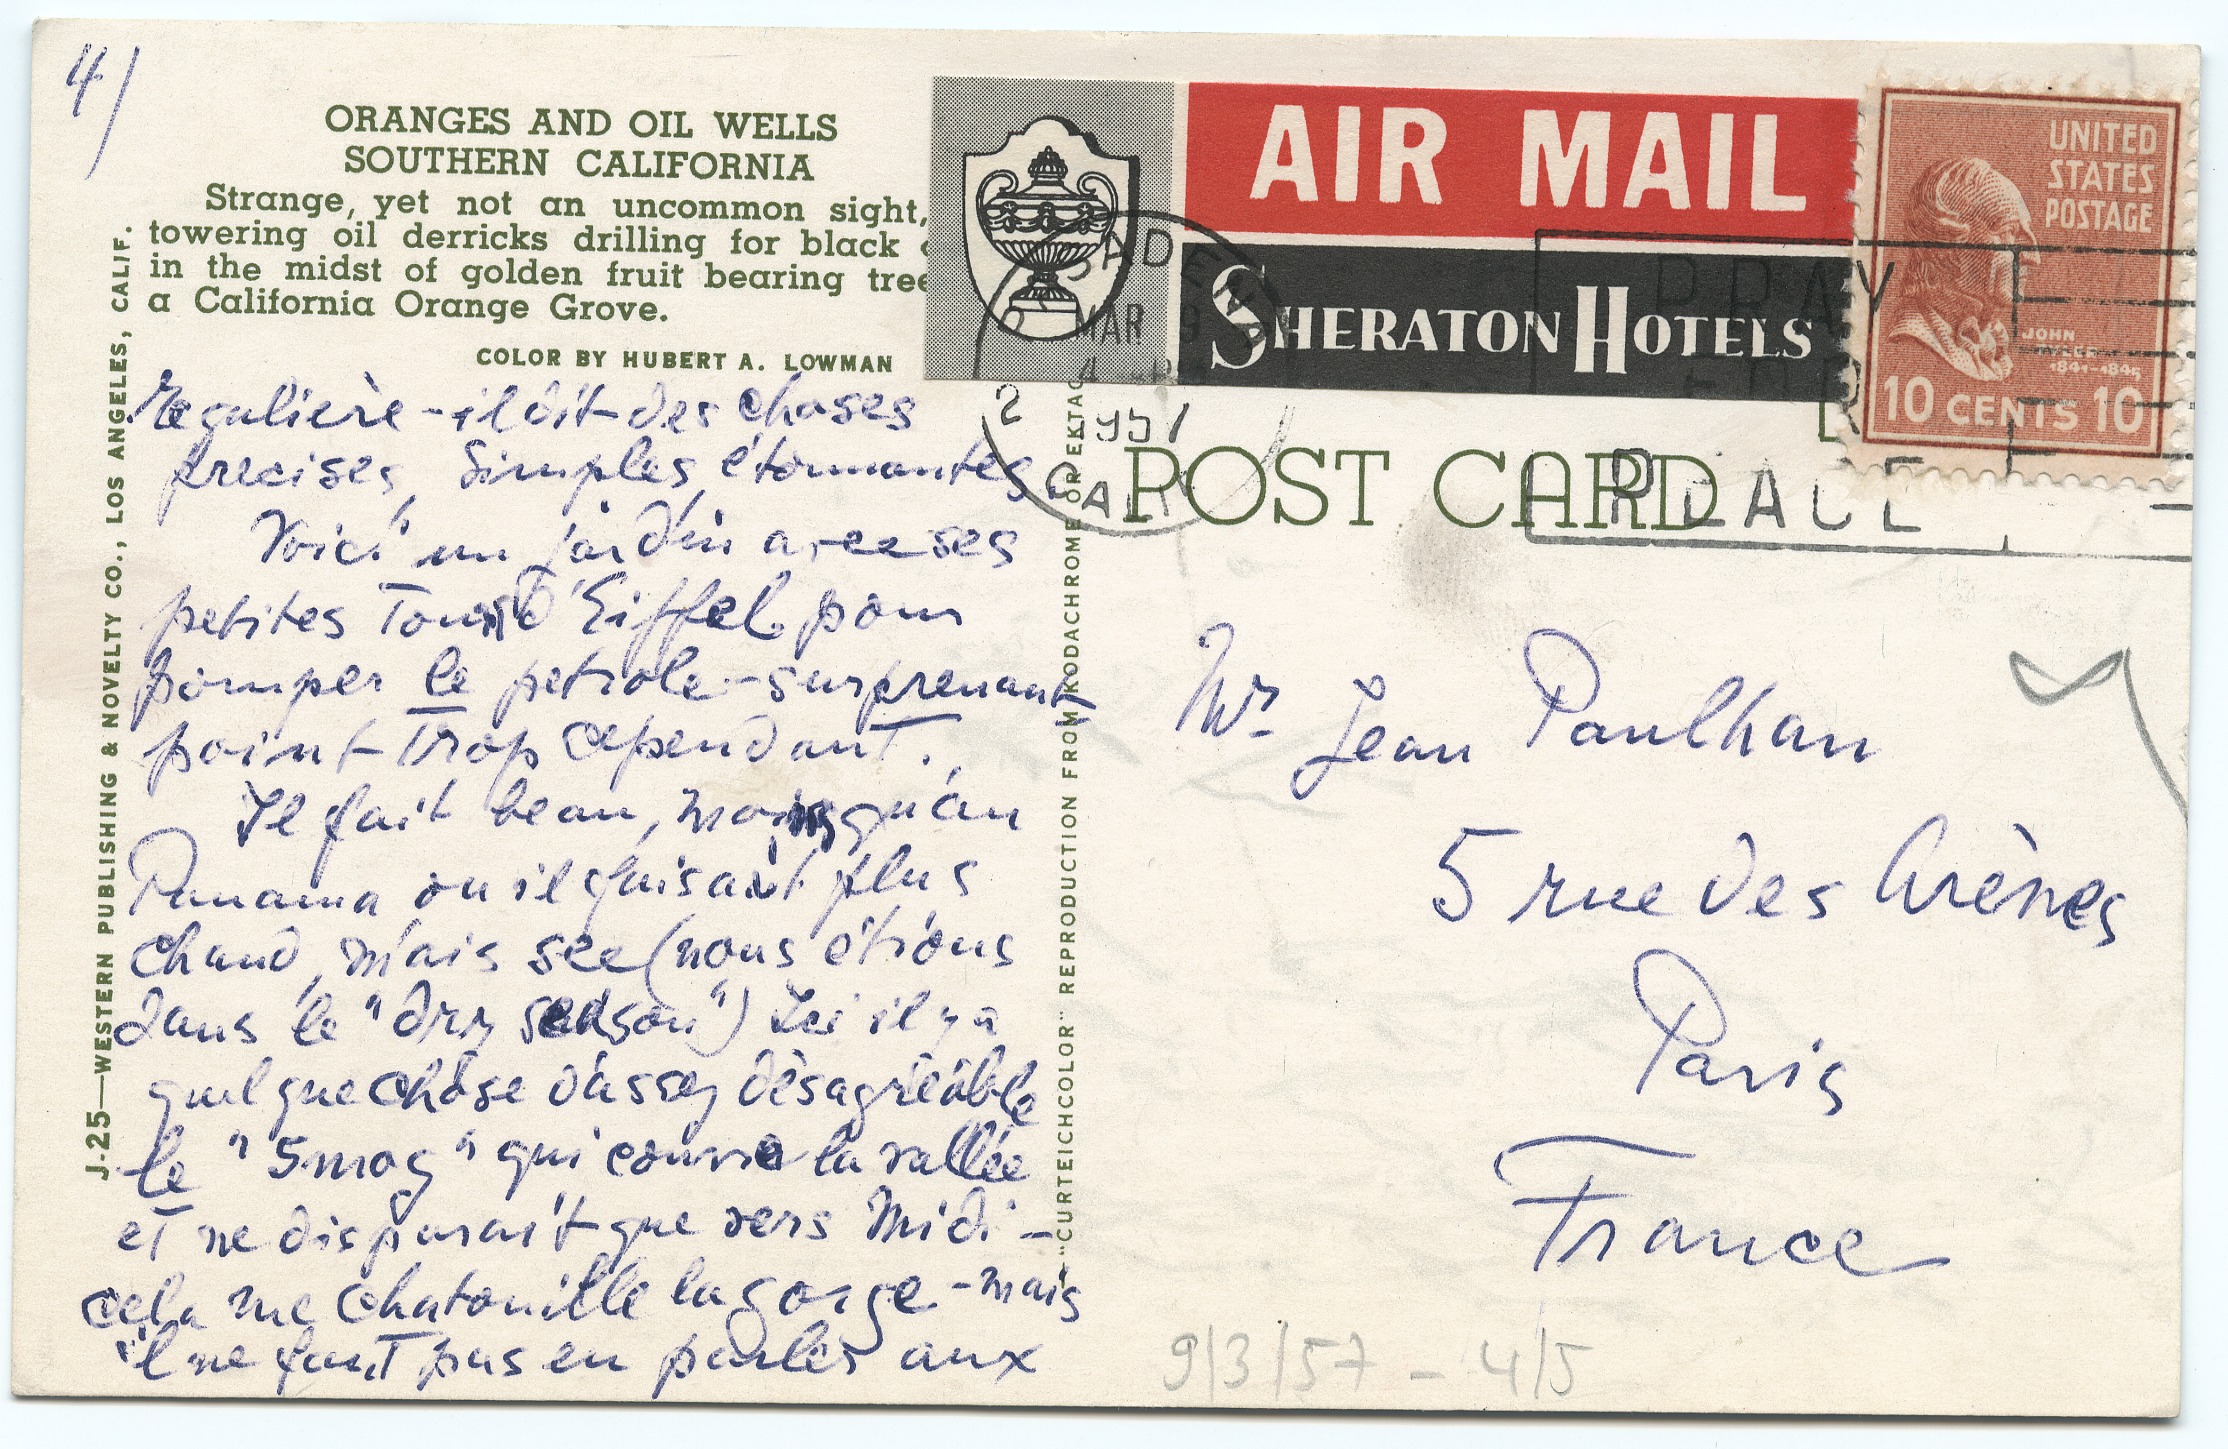 4/
ORANGES AND OIL WELLS
SOUTHERN CALIFORNIA
Strange, yet not an uncommon sight,
towering oil derricks drilling for black
in the midst of golden fruit bearing tree
a California Orange Grove.
COLOR BY HUBERT A. LOWMAN
régulière - il dit des choses
précises, simples, étonnantes
Voici un jardin avec ses
petites Tours d'Eiffel pour
pomper le petrole - surprenant
point trop cependant.
Il fait beau, moins qu'au
Panama ou il faisait plus
chaud, mais sec (nous étions
dans le "dry season") Ici il y a
quelque chose d'assez désagréable
le "Smog" qui couvre la vallée
et ne disparait que vers Midi -
cela me chatouille la gorge - mais
il ne faut pas en parler aux
J-25—WESTERN PUBLISHING & NOVELTY CO., LOS ANGELES, CALIF.
"CURTEICHCOLOR" REPRODUCTION FROM KODACHROME OR EKTAC
AIR MAIL
SHERATON HOTELS
PASADENA
MAR 9
4 PM
2 1957
CALIF
PRAY
FOR
PEACE
UNITED
STATES
POSTAGE
JOHN
1841-1845
10 CENTS 10
POST CARD
Mr Jean Paulhan
5 rue des Arènes
Paris
France
9/3/57 - 4/5